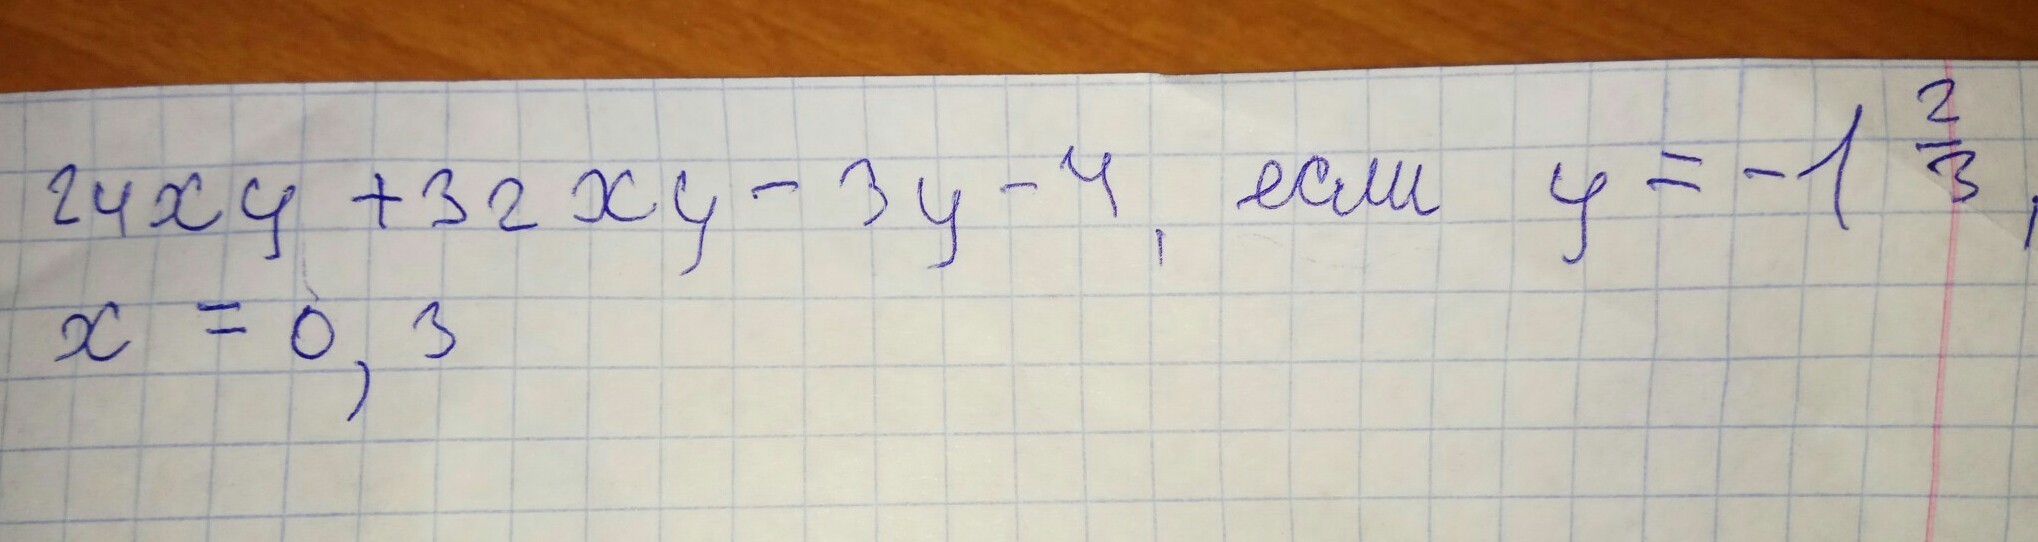 24xy + 32xy - 3y - 4, если y = -1 2/3,
x = 0,3